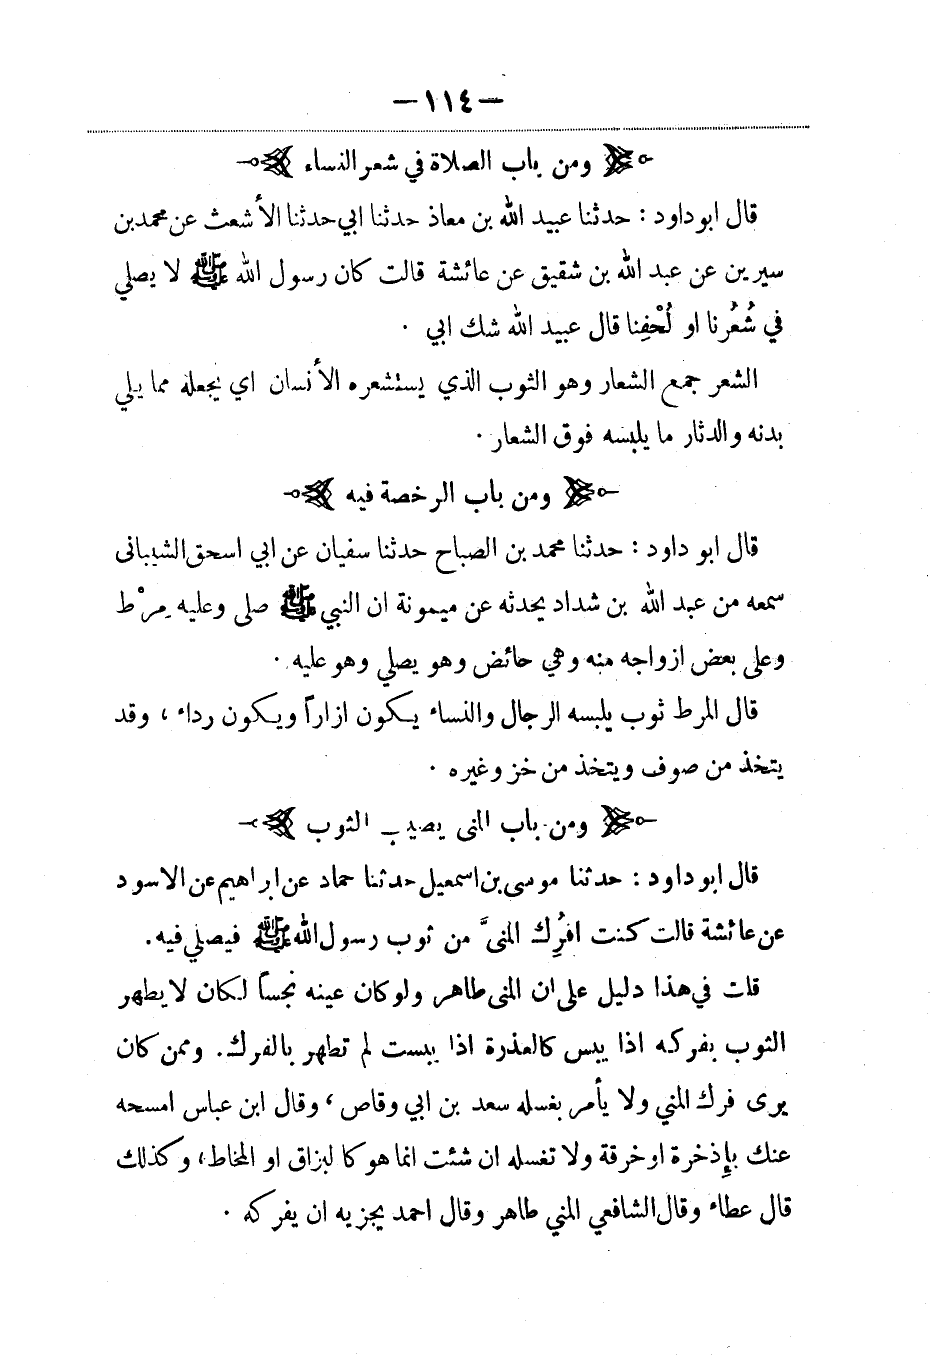 — ١١٤ —
ومن باب الصلاة في شعر النساء
قال ابو داود : حدثنا عبيد الله بن معاذ حدثنا ابي حدثنا الأشعث عن محمد بن
سيرين عن عبد الله بن شقيق عن عائشة قالت كان رسول الله ﷺ لا يصلي
في شُعُرنا او لُحْفِنا قال عبيد الله شك ابي ·
الشعر جمع الشعار وهو الثوب الذي يستشعره الأنسان اي يجعله مما يلي
بدنه والدثار ما يلبسه فوق الشعار ·
ومن باب الرخصة فيه
قال ابو داود : حدثنا محمد بن الصباح حدثنا سفيان عن ابي اسحق الشيبانى
سمعه من عبد الله بن شداد يحدثه عن ميمونة ان النبي ﷺ صلى وعليه مِرْط
وعلى بعض ازواجه منه وهي حائض وهو يصلي وهو عليه ·
قال المرط ثوب يلبسه الرجال والنساء يكون ازاراً ويكون رداء ، وقد
يتخذ من صوف ويتخذ من خز وغيره ·
ومن باب المنى يصيب الثوب
قال ابو داود : حدثنا موسى بن اسمعيل حدثنا حماد عن ابراهيم عن الاسود
عن عائشة قالت كنت افرُك المنىَّ من ثوب رسول الله ﷺ فيصلي فيه .
قلت في هذا دليل على ان المنى طاهر ولو كان عينه نجساً لكان لا يطهر
الثوب بفركه اذا يبس كالعذرة اذا يبست لم تطهر بالفرك . وممن كان
يرى فرك المني ولا يأمر بغسله سعد بن ابي وقاص ، وقال ابن عباس امسحه
عنك بإذخرة او خرقة ولا تغسله ان شئت انما هو كالبزاق او المخاط ، وكذلك
قال عطاء وقال الشافعي المني طاهر وقال احمد يجزيه ان يفركه ·